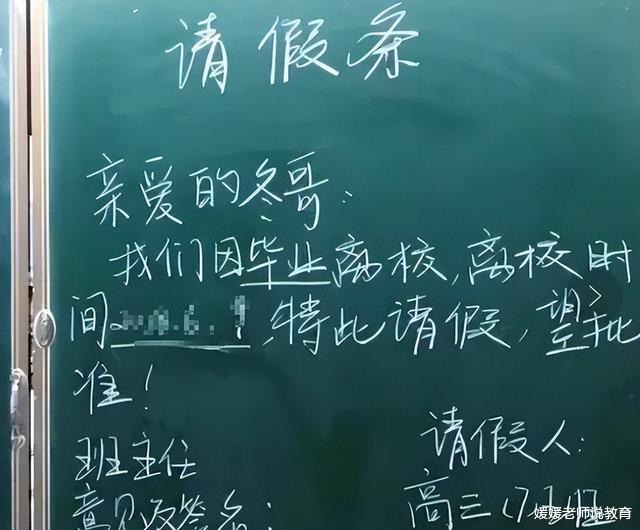 请假条
亲爱的冬哥：
我们因毕业离校，离校时
间      ，特此请假，望批
准！
班主任
意见及签名：
请假人：
高三(7)班
媛媛老师说教育